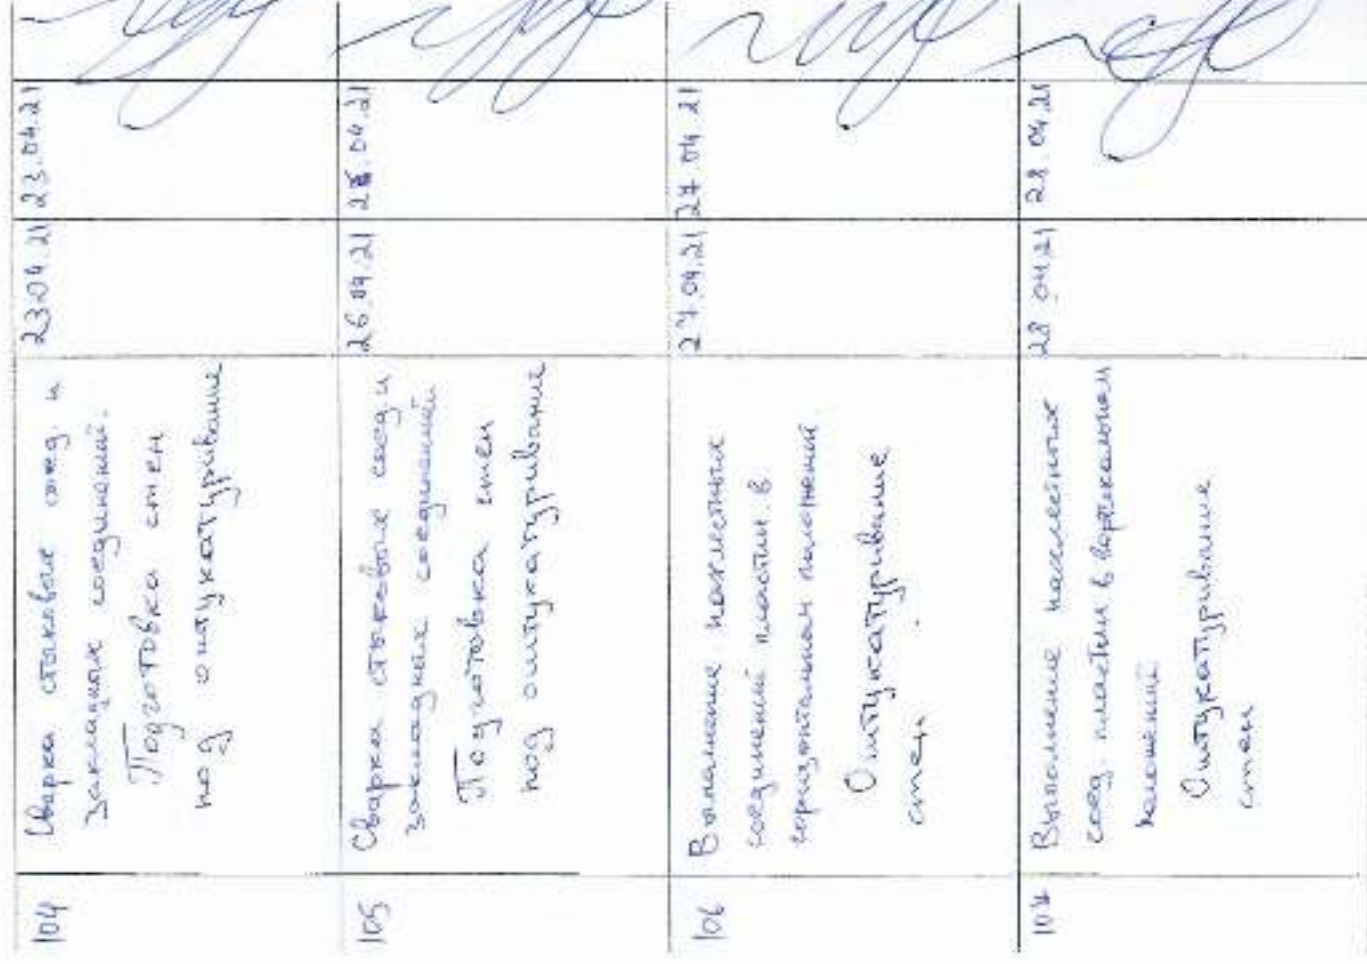 104
Сварка стыковых соед. и
закладных соединений.
Подготовка стен
под оштукатуривание
23.04.21
23.04.21
105
Сварка стыковых соед и
закладных соединений
Подготовка стен
под оштукатуривание
26.04.21
26.04.21
106
Выполнение нахлесточных
соединений пластин. в
горизонтальном положений.
Оштукатуривание
стен
27.04.21
27 04 21
107
Выполнение
соед. пластин в вертикальном
положений
Оштукатуривание
стен
28 04.21
28.04.21